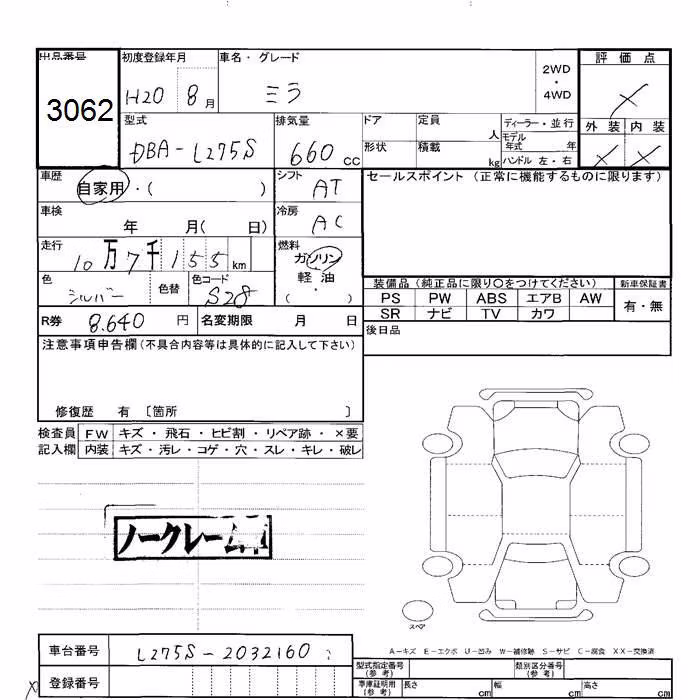 出品番号 初度登録年月 車名・グレード 2WD・4WD 評価点
3062 H20 8月 ミラ
外装 内装
型式 排気量 ドア 定員 人 ディーラー・並行
DBA-L275S 660cc 形状 積載 kg モデル年式 年
ハンドル 左・右
車歴 自家用・( ) シフト AT セールスポイント (正常に機能するものに限ります)
車検 年 月( 日) 冷房 AC
走行 10万7千155km 燃料 ガソリン 軽油 ( ・ )
色 シルバー 色替 色コード S28
装備品 (純正品に限り○をつけてください) 新車保証書
PS PW ABS エアB AW 有・無
SR ナビ TV カワ
R券 8.640円 名変期限 月 日 後日品
注意事項申告欄(不具合内容等は具体的に記入して下さい)
修復歴 有 〔箇所 〕
検査員 FW キズ・飛石・ヒビ割・リペア跡・×要
記入欄 内装 キズ・汚レ・コゲ・穴・スレ・キレ・破レ
ノークレーム
スペア
A-キズ E-エクボ U-凹み W-補修跡 S-サビ C-腐食 XX-交換済
車台番号 L275S-2032160
型式指定番号(参考) 類別区分番号(参考)
登録番号 車庫証明用(参考) 長さ cm 幅 cm 高さ cm